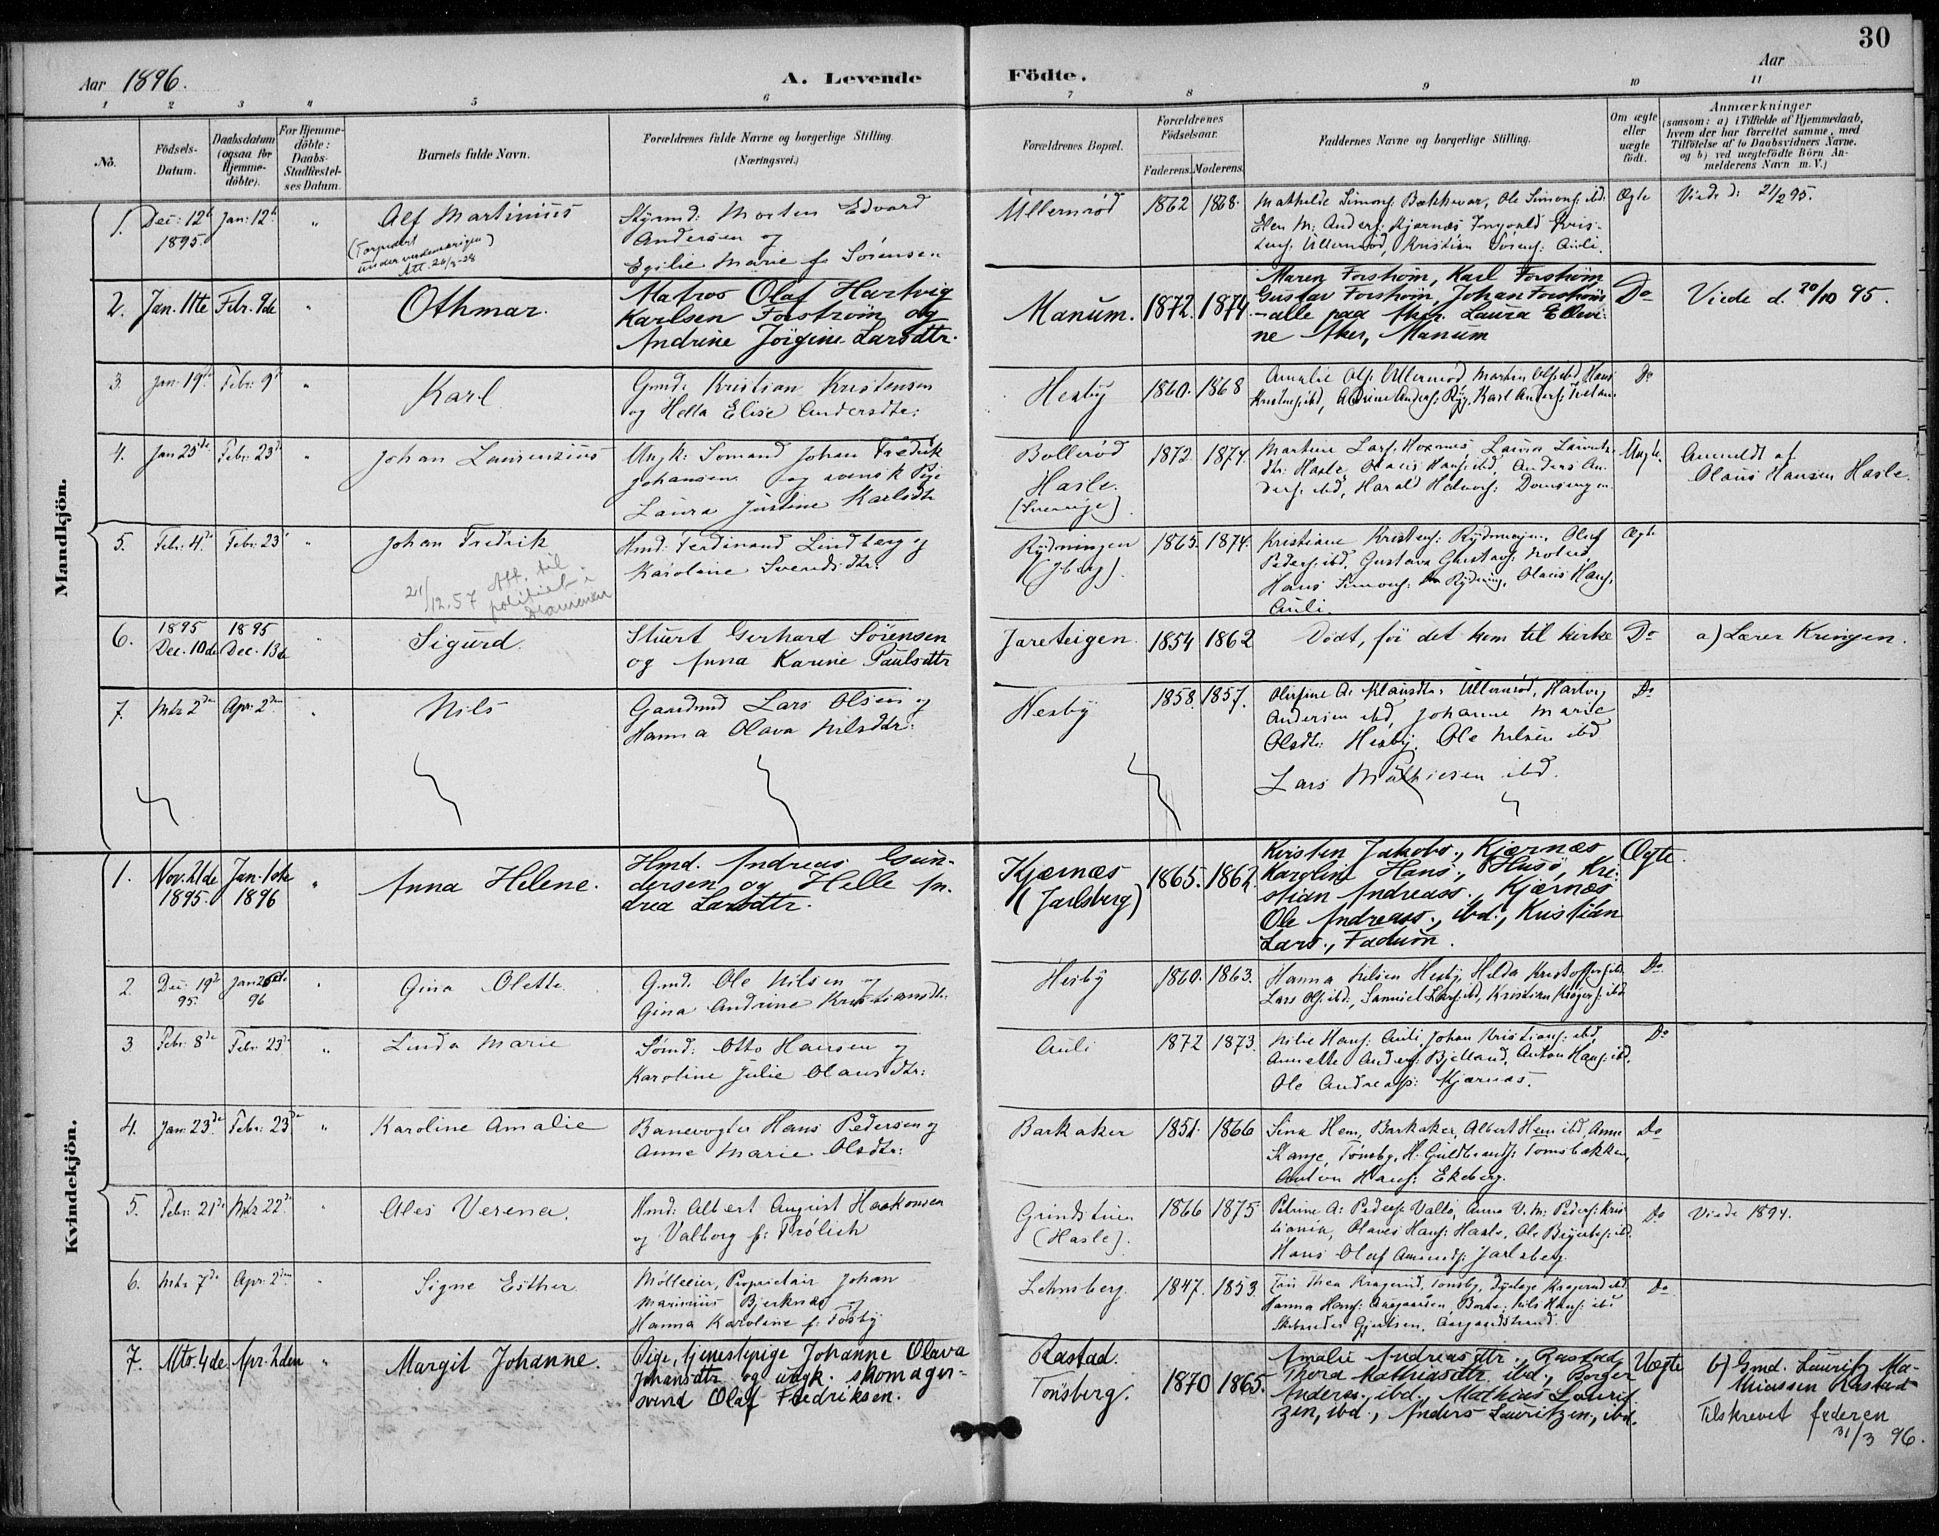 30
Aar 1896.
A. Levende Födte.
Aar
1 2 3 4 5 6 7 8 9 10 11
No.
Födsels-Datum.
Daabsdatum (ogsaa for Hjemme-döbte).
For Hjemme-döbte: Daabs-Stadfæstel-ses Datum.
Barnets fulde Navn.
Forældrenes fulde Navne og borgerlige Stilling.
(Næringsvei.)
Forældrenes Bopæl.
Forældrenes Födselsaar.
Faderens. Moderens.
Faddernes Navne og borgerlige Stilling.
Om ægte eller uægte födt.
Anmærkninger
(saasom: a) i Tilfælde af Hjemmedaab,
hvem der har forrettet samme, med
Tilföielse af to Daabsvidners Navne.
og b) ved uægtefödte Börn An-
melderens Navn m. V.)
Mandkjön.
1. Dec: 12te 1895 Jan: 12te " Alf Martinius
Styrmd: Morten Edvard
Andersen og
Egilie Marie f. Sörensen
Ullernröd 1862 1868.
Mathilde Simons: Bakkevar, Ole Simons: ibd.
Ellen M: Anders: Kjærnæs Ingvald Kris-
tens: Ullernröd, Kristian Sörens: Auli.
Ægte Viede d: 21/2 95.
2. Jan. 11te Febr. 9de " Othmar.
Matros Olaf Hartvig
Karlsen Forström og
Andrine Jörgine Larsdtr.
Manum. 1872. 1874.
Maren Forström, Karl Forström,
Gustav Forström, Johan Forström
- alle paa Aker. Laura Ellevi-
ne Aker, Manum
Do Viede d. 20/10 95.
3. Jan. 19de Febr: 9de " Karl
Gmd: Kristian Kristensen
og Hella Elise Andersdtr:
Hesby 1860. 1868
Amalie Ols: Ullernröd, Martin Ols: ibd, Hans
Kristens: ibd, Andrine Anders: Ryg, Karl Anders:
Do
4. Jan 25de Febr: 23de " Johan Laurenzius
Ungk: Sömand Johan Fredrik
Johansen og svensk Pige
Laura Justine Karlsdtr
Bollerød
Hasle.
(Sverige).
1872. 1874.
Martine Lars: Hoxnes, Laura Laurits-
dtr: Hasle, Olaus Hans: ibd, Anders An-
ders: ibd, Harald Halvors:
Uægte. Anmeldt af
Olaus Hansen Hasle.
5. Febr: 4de Febr: 23de " Johan Fredrik
21/12.57 Att. til politiet i Drammen
Hmd: Ferdinand Lindberg og
Karoline Svendsdtr:
Rydningen
(Jlsberg).
1865. 1874.
Kristiane Kristens: Rydningen, Oluf
Peders: ibd, Gustava Gustavs:
Hans Simons: Rydning, Olaus Hans:
Auli.
Ægte
6. 1895 Dec. 10de 1895 Dec. 13de " Sigurd.
Stuert Gerhard Sörensen
og Anna Karine Paulsdtr
Jareteigen 1854 1862
Dödt, för det kom til kirke
Do a) Lærer Kringen.
7. Mrs 2den Apr. 2den " Nils
Gaardmd Lars Olsen og
Hanna Olava Nilsdtr:
Hesby 1858. 1857.
Olefine A: Klausdtr: Ullernröd, Hartvig
Andersen ibd, Johanne Marie
Olsdtr: Hesby, Ole Nilsen ibd
Lars Mathiesen ibd.
Do
Kvindekjön.
1. Nov. 21de 1895. Jan. 1ste 1896 " Anna Helene.
Hmd. Andreas Gun-
dersen og Helle An-
drea Larsdtr.
Kjærnæs
(Jarlsberg)
1865. 1862.
Kristen Jakobs., Kjærnæs
Karoline Hans., Husö, Kri-
stian Andreass., Kjærnæs
Ole Andreass., ibd., Kristian
Lars., Fadum.
Ægte.
2. Dec: 19de 95. Jan 26de 96 " Gina Olette
Gmd: Ole Nilsen og
Gina Andrine Kristiansdtr:
Hesby 1860. 1863.
Hanna Nilsen Hesby, Hilda Kristoffers: ibd,
Lars Ols: ibd., Samuel Lars: ibd, Kristian Krögers: ibd
Do
3 Febr: 8de Febr: 23de " Linda Marie
Sömd: Otto Hansen og
Karoline Julie Olausdtr:
Auli 1872 1873.
Milie Hans: Auli, Johan Kristians: ibd,
Annette Anders: Bjelland, Anton Hans: ibd.
Ole Andreass: Kjærnæs.
Do
4. Jan: 23de Febr: 23de " Karoline Amalie
Banevogter Hans Pedersen og
Anne Marie Olsdtr:
Barkaker 1851. 1866
Sina Hem, Barkaker, Albert Hem ibd, Anne
Stange, Tönsbg, H. Guldbrands: Tomsbakken,
Anton Hans: Ekeberg.
Do
5. Febr: 21de Mrs 22de " Ales Verena.
Hmd: Albert August Haakonsen
og Valborg f: Frölich
Grindstuen
(Hasle).
1866 1875
Petrine A: Peders: Vallö, Anna V. M: Peders: Kris-
tiania, Olaves Hans: Hasle, Ole Birgithes: ibd,
Hans Olaf Amunds: Jarlsberg.
Do Viede 1894.
6. Mrs 7de Apr: 2den " Signe Esther
Mölleeier, Proprietær Johan
Marinius Bjerknæs og
Hanna Karoline f: Fösby
Lehnsberg. 1847. 1853.
Thea Kragerud, Tönsbg, Kragerud ibd
Hanna Hans: Borre, Nils Hans: ibd
Skibsreder Gjertsen, Aasgaardstrand.
Do
7. Mts. 4de. Apr. 2den " Margit Johanne.
Pige, tjenestepige Johanne Olava
Johansdtr og ungk. skomager-
svend Olaf Fredriksen.
Rastad.
Tönsberg.
1870 1865.
Amalie Andreasdtr. Rastad,
Thora Mathiasdtr. ibd., Borger
Anders. ibd., Mathias Laurit-
zen, ibd., Anders Lauritzen, ibd.
Uægte b) Gmd. Lauritz Ma-
thiassen Rastad
Tilskrevet faderen
31/3 96.